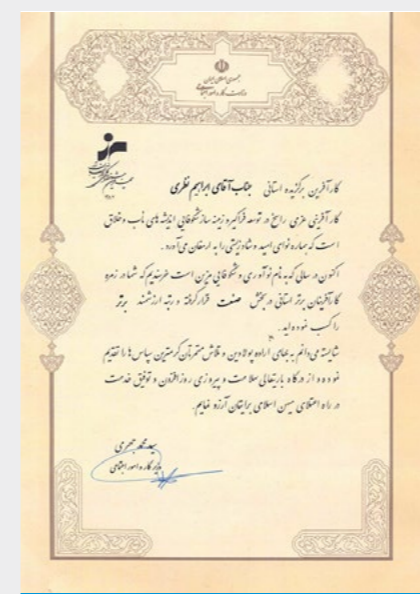 جمهوری اسلامی ایران
وزارت کار و امور اجتماعی
کارآفرین برگزیده استانی جناب آقای ابراهیم نظری
کارآفرینی عزمی راسخ در توسعه فراگیر و زمینه ساز شکوفایی اندیشه های ناب و خلاق
است که هماره نوای امید و شادزیستی را به ارمغان می آورد.
اکنون در سالی که به نام نوآوری و شکوفایی مزین است خرسندیم که شما در زمره
کارآفرینان برتر استانی در بخش صنعت قرار گرفته و رتبه ارزشمند برتر
را کسب نموده اید.
شایسته می دانم به بهای اراده پولادین و تلاش مثمرتان گرمترین سپاس ها را تقدیم
نموده و از درگاه باریتعالی سلامت و پیروزی روزافزون و توفیق خدمت
در راه اعتلای میهن اسلامی برایتان آرزو نمایم.
سید محمد جهرمی
وزیر کار و امور اجتماعی